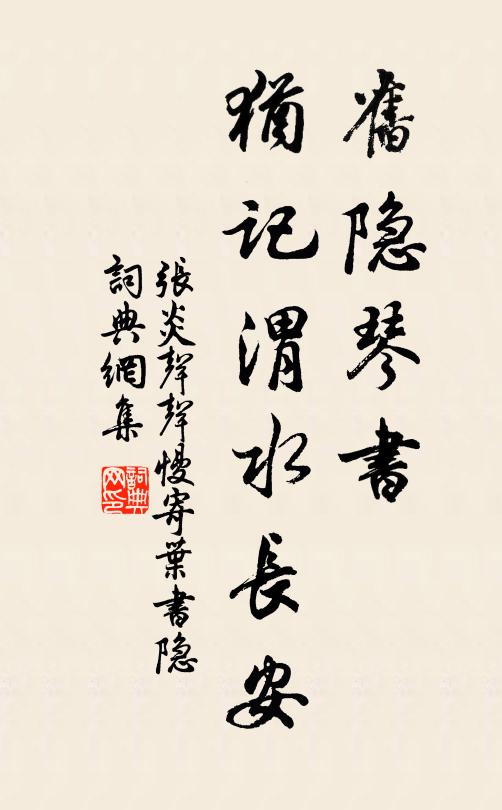 舊隐琴書
猶記渭水長安
張炎聲聲慢寄葉書隐
詞典網集
詞典網印